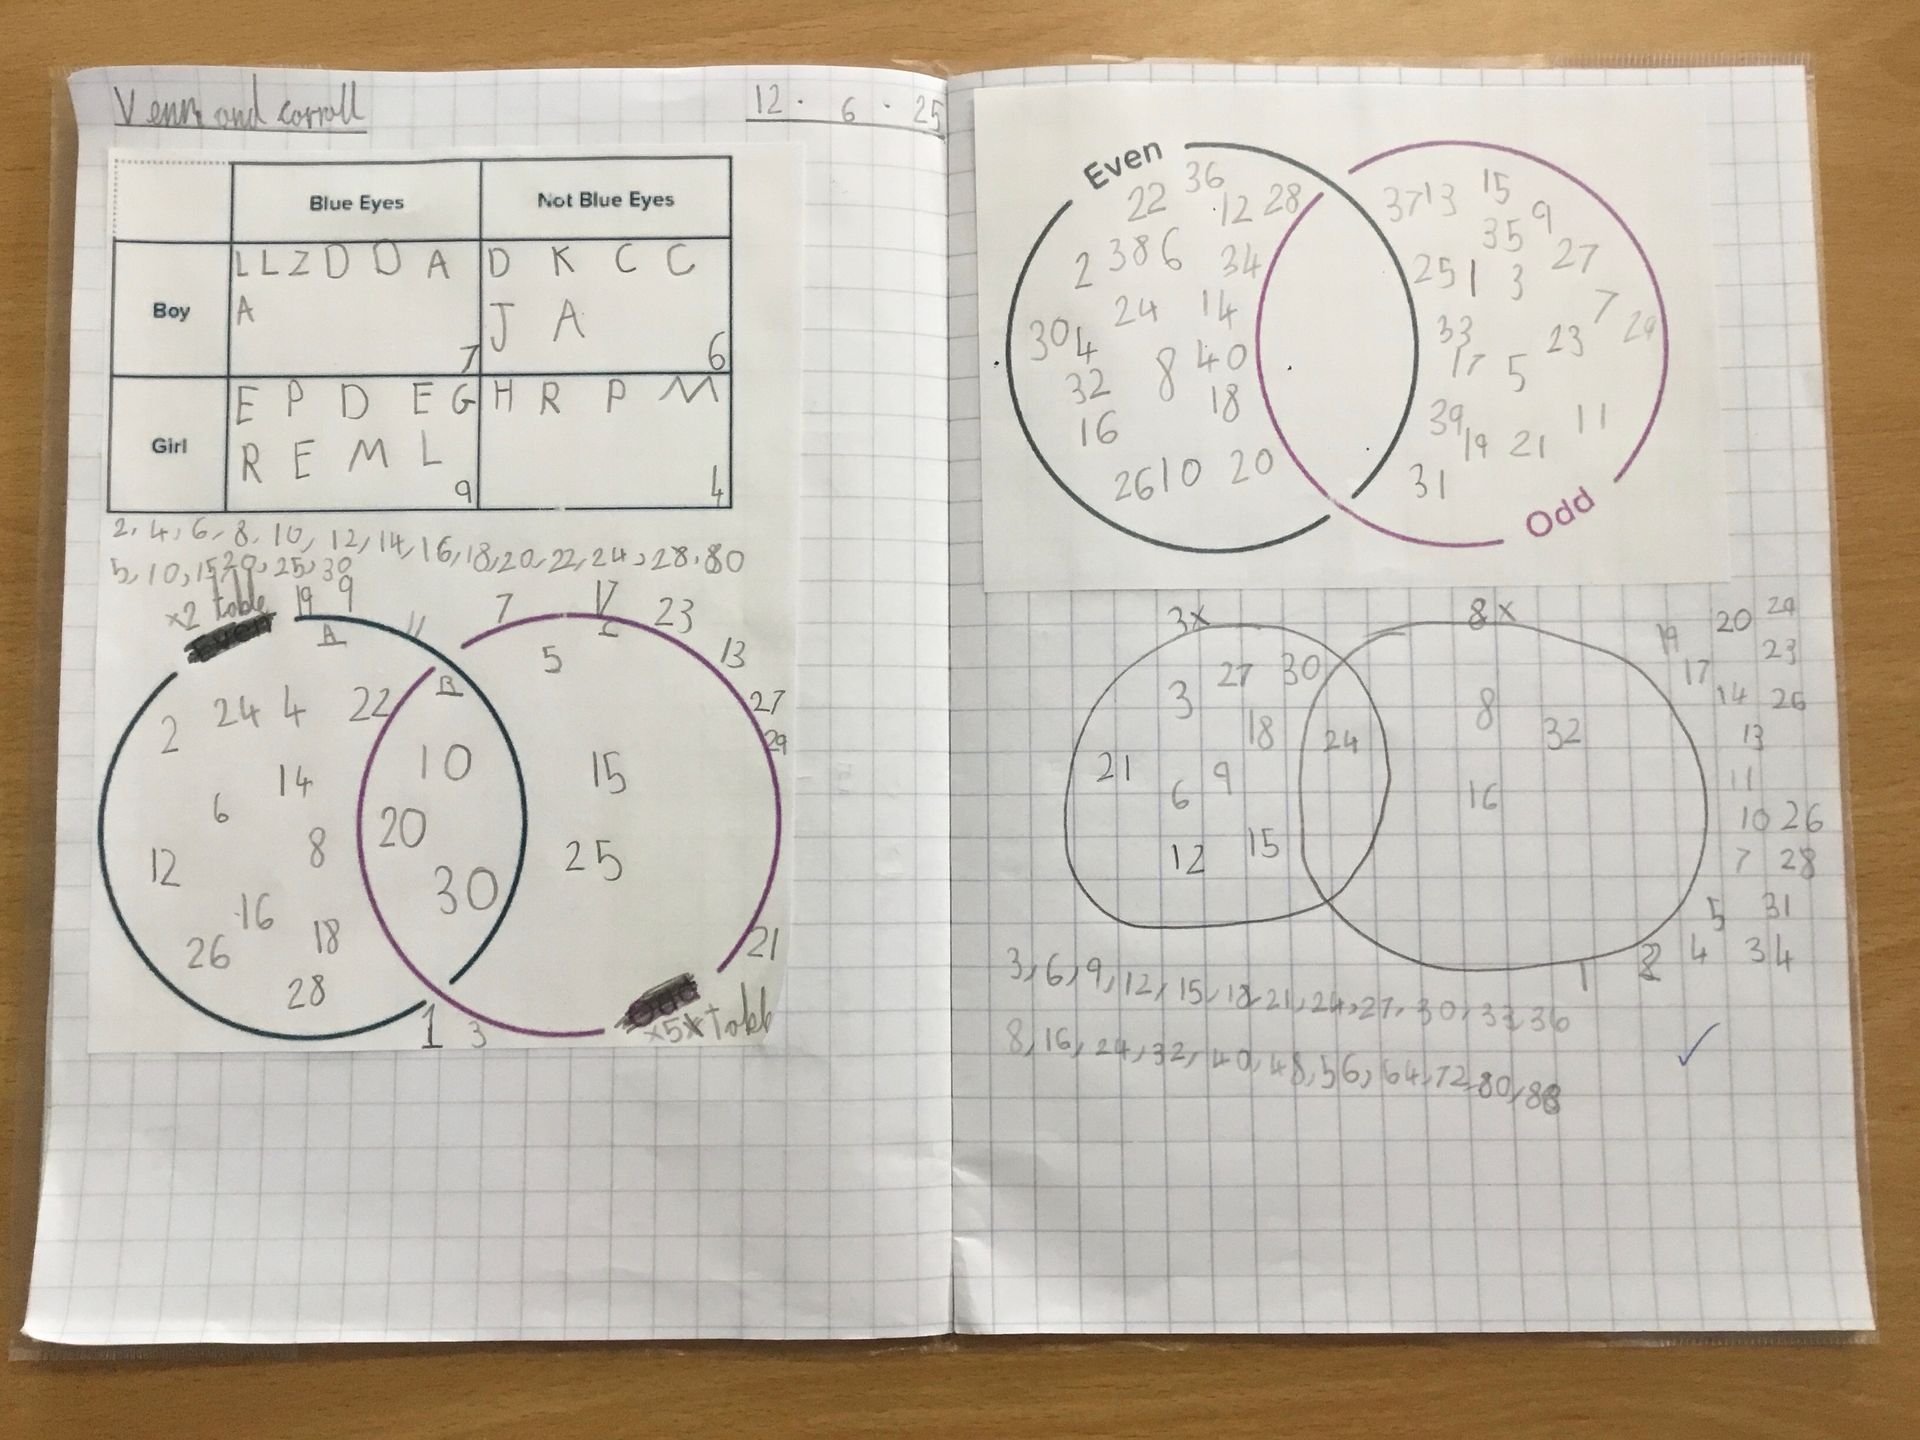 Venn and corroll
12 . 6 . 25
Blue Eyes Not Blue Eyes
L L Z D D A D K C C
Boy
A J A
7 6
E P D E G H R P M
Girl
R E M L
9 4
2, 4, 6, 8, 10, 12, 14, 16, 18, 20, 22, 24, 28, 80
5, 10, 15, 20, 25, 30
×2 table
19 9 11 7 17 23
A B 5 13
27
29
2 24 4 22
14
6
12 8
16
26 18
28
10
20
30
15
25
21
1 3
×5× Tabb
Even
36
22 12 28
2 38 6 34
24 14
30 4
8 40
32
18
16
26 10 20
37 13 15
35 9
25 1 3 27
7
33 23 29
17 5
39 11
19 21
31
Odd
3× 8×
27 30
3
18
21
6 9
12 15
24
8
32
16
19 20 29
17 23
14 26
13
11
10 26
7 28
5 31
1 2 4 34
3, 6, 9, 12, 15, 18, 21, 24, 27, 30, 33, 36
8, 16, 24, 32, 40, 48, 56, 64, 72, 80, 88